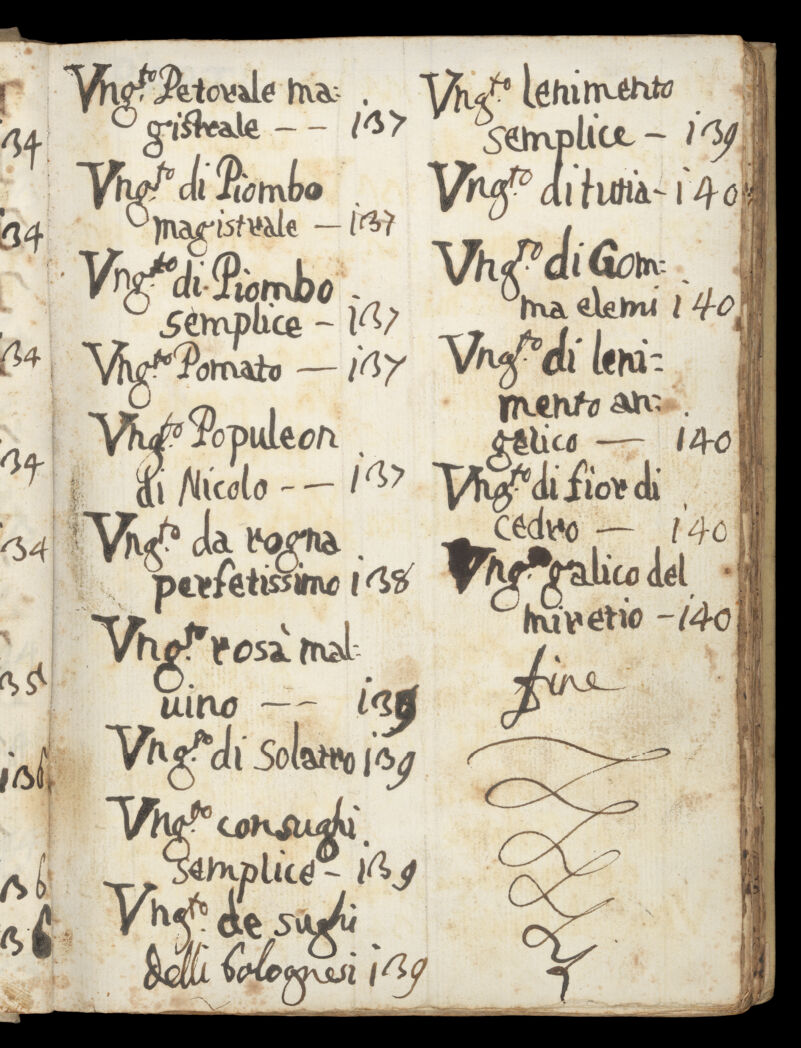 34
34
34
34
34
35
i36
36
36
Vng.to Petorale ma:
gistrale - - i37
Vng.to di Piombo
magistrale - i37
Vng.to di Piombo
semplice - i37
Vng.to Pomato — i37
Vng.to Populeon
di Nicolo - - i37
Vng.to da rogna
perfetissimo i38
Vng.to rosà mal:
uino - - i39
Vng.to di Solatro i39
Vng.to con sughi
semplice - i39
Vng.to de sughi
delli bolognesi i39
Vng.to lenimento
semplice - i39
Vng.to di tutia - i40
Vng.to di Gom:
ma elemi i40
Vng.to di leni:
mento an:
gelico — i40
Vng.to di fior di
cedro — i40
Vng. galico del
miretio - i40
fine